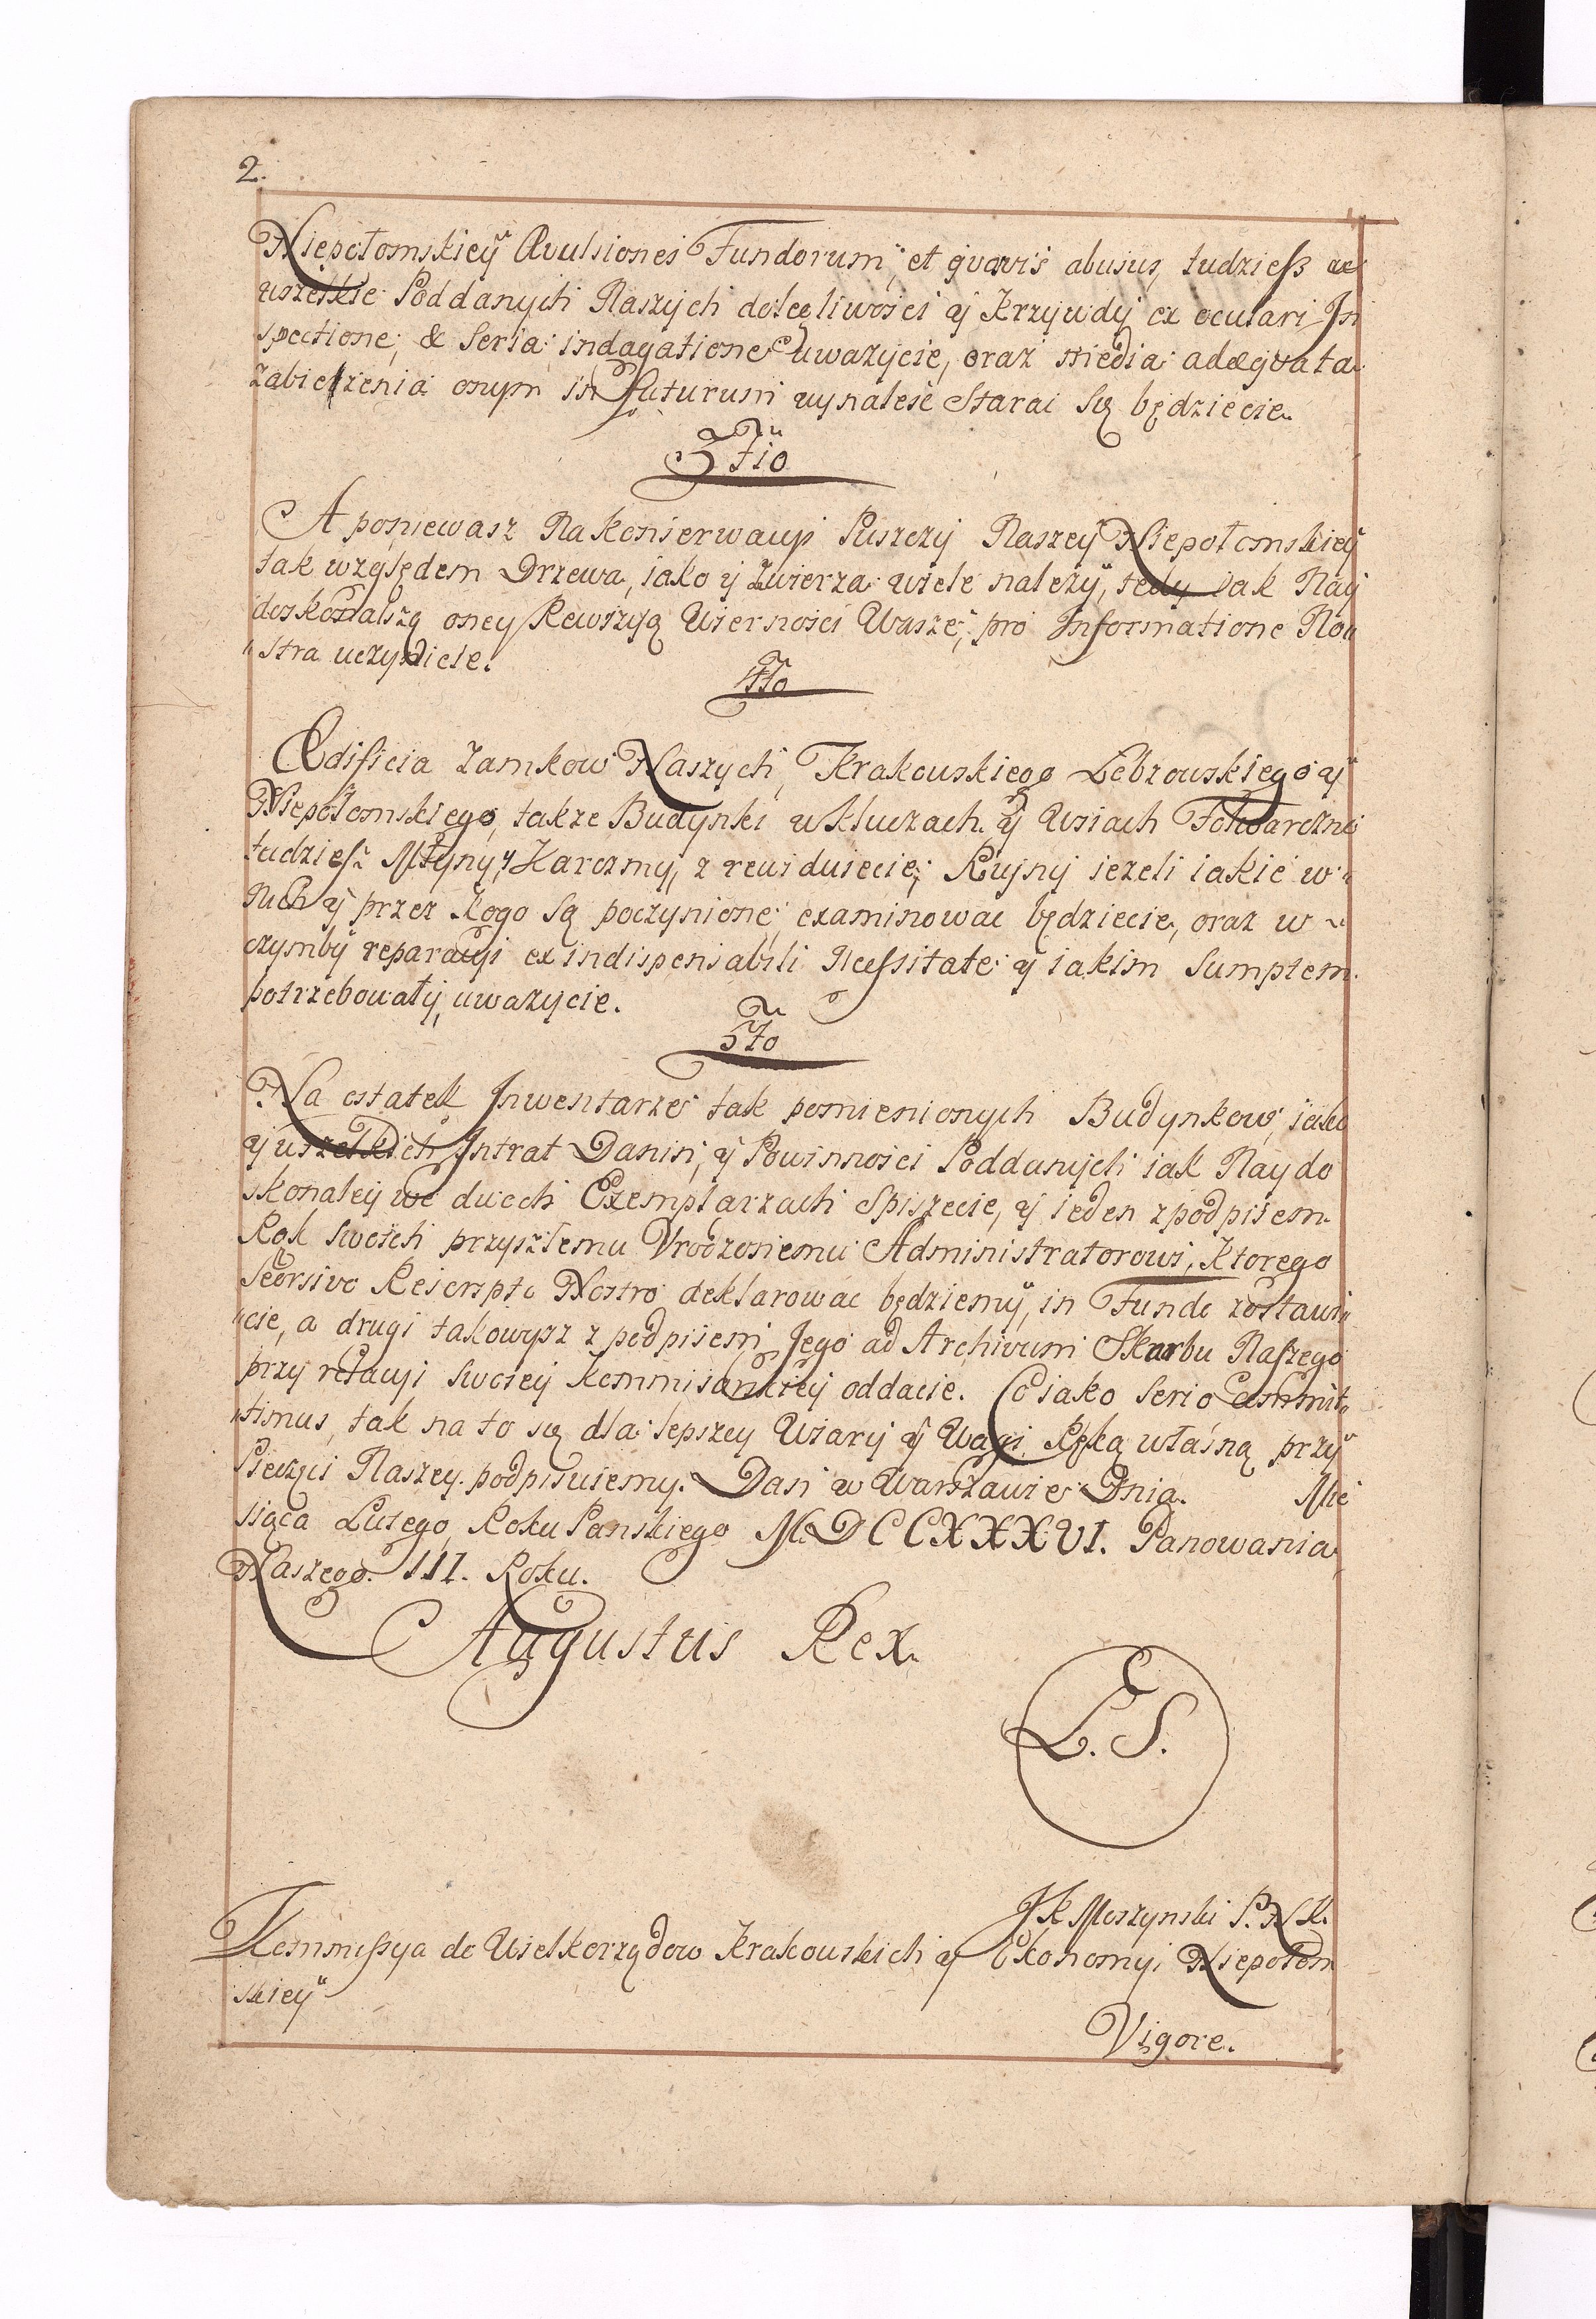 2.
Niepołomskiey Avulsiones Fundorum, et qvavis abusus, tudziesz
wszelkie Poddanych Naszych dolęgliwosci y Krzywdy ex oculari In
spectione, & seria indagatione uwazycie, oraz media adæqvata
zabiezenia onym in futurum wynaleść starac się będziecie.
3tio
A poniewasz Na konserwacyi Puszczy Naszey Niepołomskiey
tak względem Drzewa, iako y Zwierza wiele nalezy, tedy iak Nay
doskonalszą oney Rewizyą Wiernosci Wasze, pro Informatione No„
„stra uczynicie.
4to
Ædificia Zamkow Naszych, Krakowskiego Lobzowskiego y
Niepołomskiego, takze Budynki w kluczach y Wsiach Folwarczne
tudziesz Młyny, Karczmy, z rewiduiecie, Ruiny iezeli iakie w„
Nich y przez kogo są poczynione, examinowac będziecie, oraz w
czymby reparacyi ex indispensabili Necessitate y iakim sumptem
potrzebowały, uwazycie.
5to
Na ostatek Inwentarze tak pomienionych Budynkow, iako
y wszelkich Intrat Danin, y Powinnosci Poddanych iak Naydo
skonaley we dwoch Exemplarzach spiszecie, y ieden z podpisem
Rąk swoich przyszłemu Vrodzonemu Administratorowi, ktorego
Seorsivo Rescripto Nostro deklarowac będziemy, in Fundo zostawi„
„cie, a drugi takowysz z podpisem Jego ad Archivum Skarbu Naszego
przy relacyi swoiey Kommisarskiey oddacie. Co iako serio committ„
„timus, tak na to się dla lepszey Wiary y Wagi Ręką własną przy
Pieczęci Naszey podpisuiemy. Dan w Warszawie Dnia. Mie
siąca Lutego, Roku Panskiego MDCCXXXVI. Panowania
Naszego III. Roku.
Augustus Rex.
L. S.
JK Moszynski P. N. K.
Kommissya do Wielkorządow Krakowskich y Ekonomyi Niepołom
skiey
Vigore.